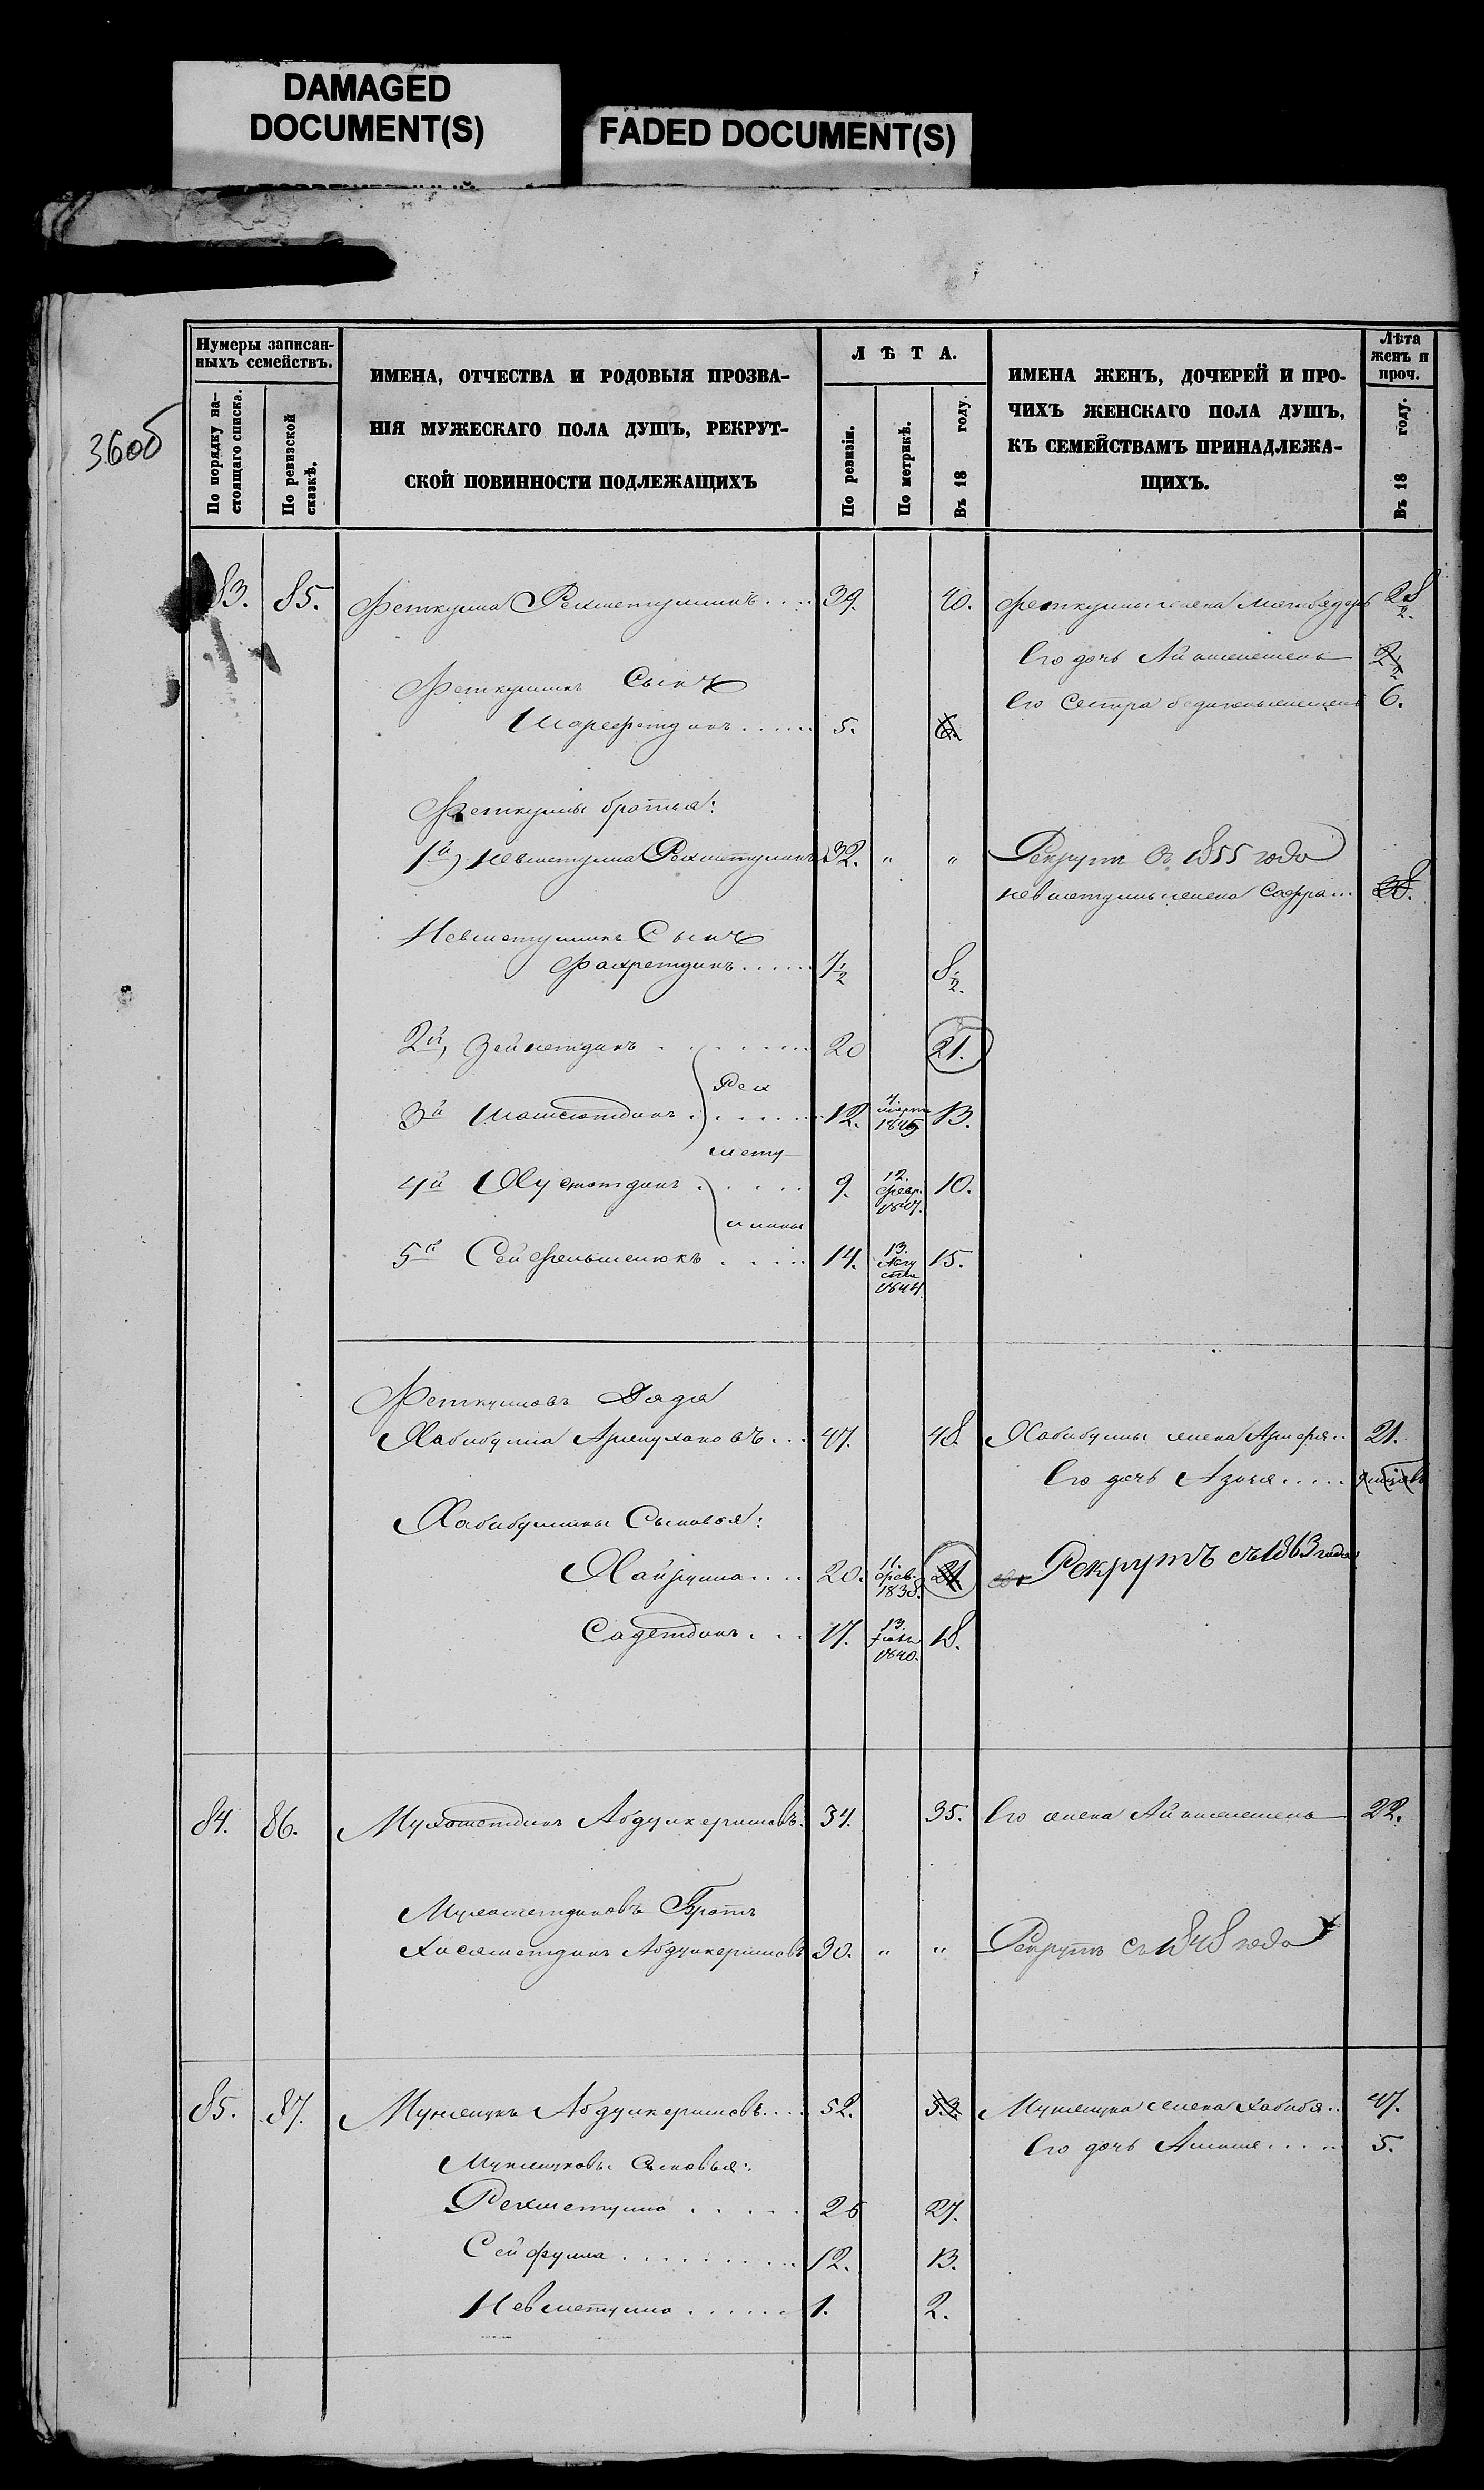 DAMAGED
DOCUMENT(S)
FADED DOCUMENT(S)
36об
Нумеры записан-
ныхъ семействъ.
По порядку на-
стоящаго списка.
По ревизской
сказкѣ.
ИМЕНА, ОТЧЕСТВА И РОДОВЫЯ ПРОЗВА-
НІЯ МУЖЕСКАГО ПОЛА ДУШЪ, РЕКРУТ-
СКОЙ ПОВИННОСТИ ПОДЛЕЖАЩИХЪ
ЛѢТА.
По ревизіи.
По метрикѣ.
Въ 18 году.
ИМЕНА ЖЕНЪ, ДОЧЕРЕЙ И ПРО-
ЧИХЪ ЖЕНСКАГО ПОЛА ДУШЪ,
КЪ СЕМЕЙСТВАМЪ ПРИНАДЛЕЖА-
ЩИХЪ.
Лѣта
женъ и
проч.
Въ 18 году.
83. 85. Феткулла Рехметуллинъ.... 39. 40. Феткуллы жена 28 1/2.
Его дочь
Феткуллинъ Сынъ
Его Сестра 6.
5. 6.
Феткуллы братья:
1й) Невметулла Рехметуллинъ 32. " " Рекрутъ съ 1855 года
Невметуллы жена Сафра... 38.
Невметуллинъ Сынъ
Фахретдинъ...... 7 1/2 8 1/2.
2й, Зейнетдинъ 20 21.
Рех
3й Шамсютдинъ 12. 4. марта 1845 13.
мету-
4й 9. 12. Февр. 1847. 10.
ллины
5й Сейфельмелюкъ.... 14. 13. Авгу ста 1844. 15.
Феткулловъ Дядя
Хабибулла 47. 48. Хабибуллы жена 21.
Его дочь
Хабибуллины Сыновья:
Хайрулла.... 20. 11. Фев. 1838. 21 Рекрутъ съ 1863 года
Садетдинъ... 17. 13. 1840. 18.
84. 86. Мухаметдинъ Абдулкеримовъ. 34. 35. Его жена 22.
Мухаметдиновъ Братъ
Хисаметдинъ Абдулкеримовъ 30. " " Рекрутъ съ 1848 года
85. 87. Абдулкеримовъ.... 52. 53. жена Хабибя.. 47.
Его дочь 5.
Сыновья:
Рехметулла..... 26 27.
Сейфулла......... 12. 13.
Невметулла...... 1. 2.